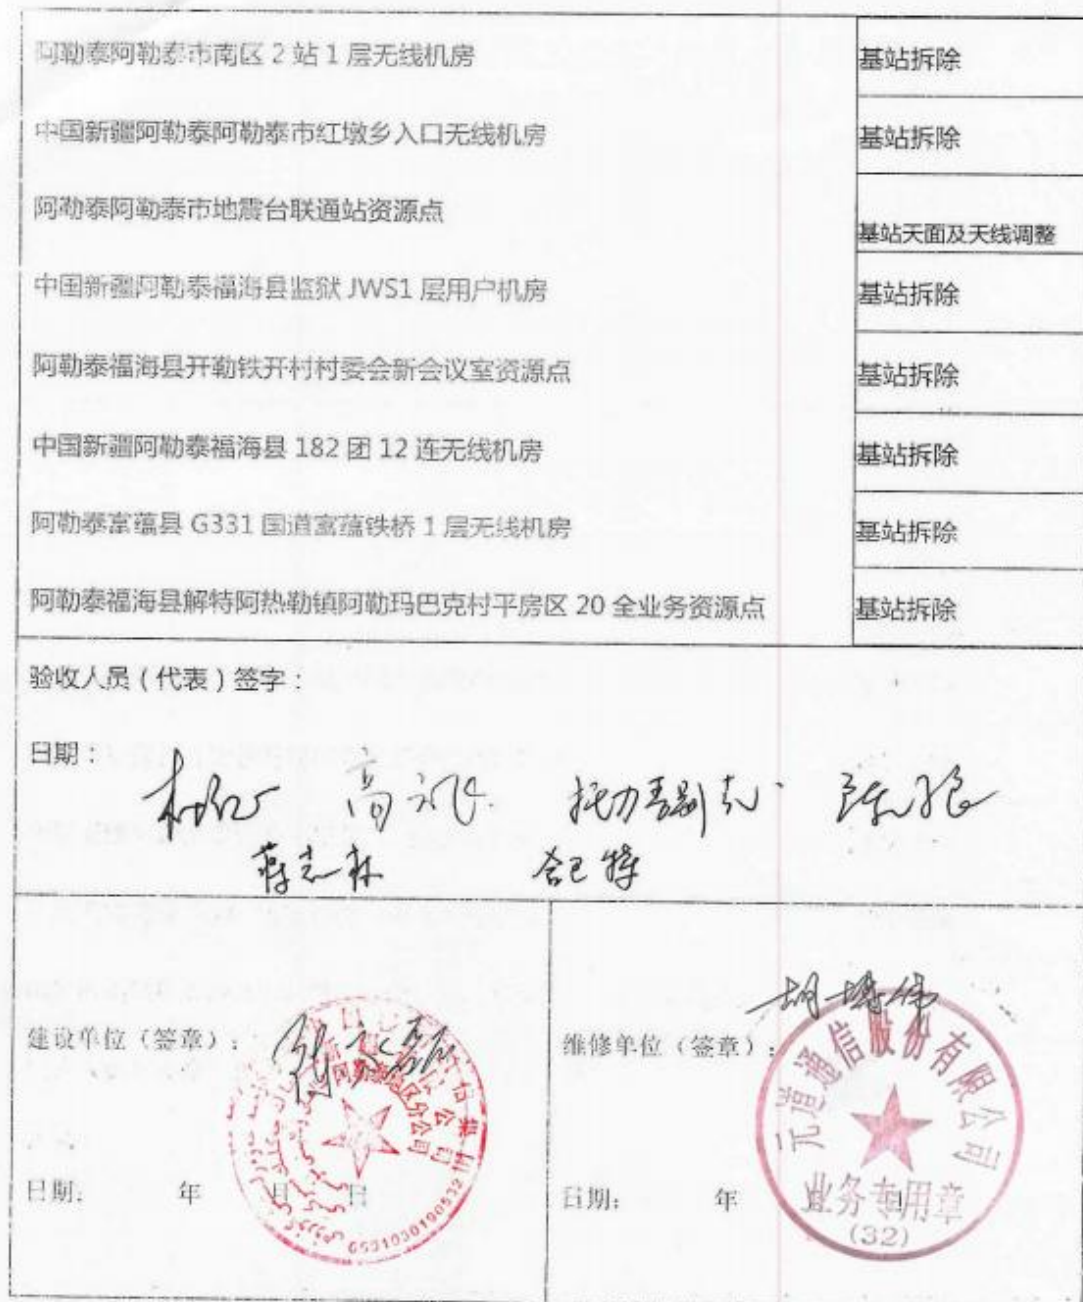 阿勒泰阿勒泰市南区 2 站 1 层无线机房 基站拆除
中国新疆阿勒泰阿勒泰市红墩乡入口无线机房 基站拆除
阿勒泰阿勒泰市地震台联通站资源点 基站天面及天线调整
中国新疆阿勒泰福海县监狱 JWS1 层用户机房 基站拆除
阿勒泰福海县开勒铁开村村委会新会议室资源点 基站拆除
中国新疆阿勒泰福海县 182 团 12 连无线机房 基站拆除
阿勒泰富蕴县 G331 国道富蕴铁桥 1 层无线机房 基站拆除
阿勒泰福海县解特阿热勒镇阿勒玛巴克村平房区 20 全业务资源点 基站拆除
验收人员（代表）签字：
日期：
蒋志林
建设单位（签章）：
阿勒泰地区分公司
日期： 年 月 日
维修单位（签章）：
胡博伟
元道通信股份有限公司
业务专用章
(32)
日期： 年 月 日